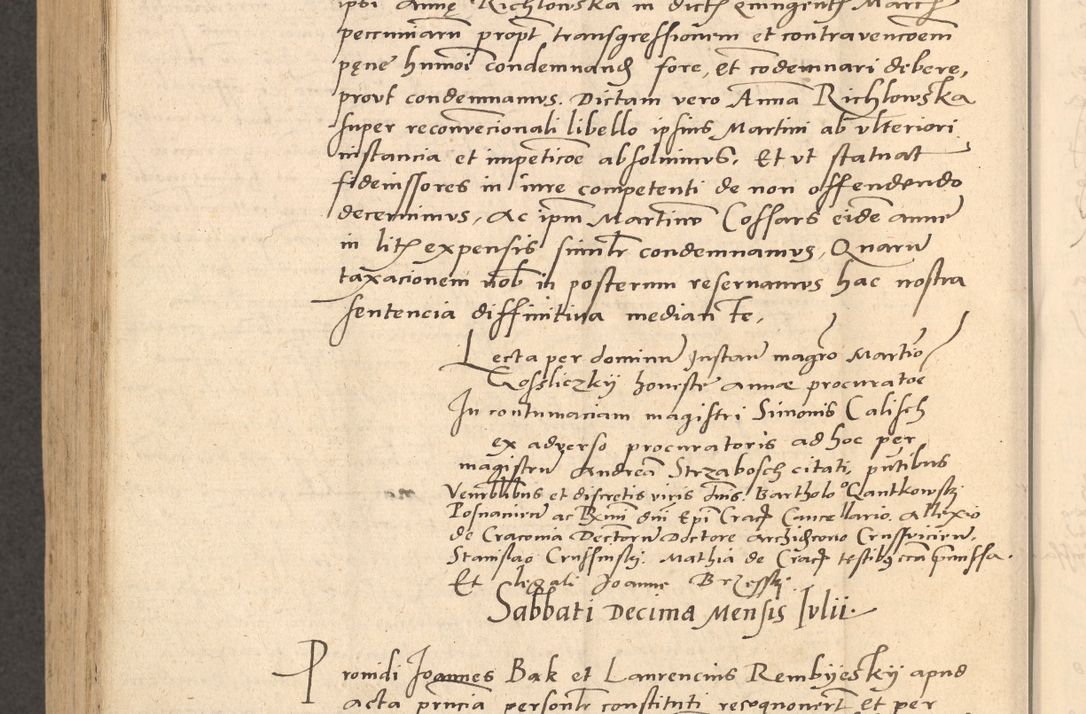 ipsi Annę Richlowska in dictis quingentis Marcis
peccuniarum propt transgressionem et contravencoem
pęne humoi condemnand fore, et codemnari debere,
provt condemnamus. Dictam vero Anna Richlowska
super reconvecionali libello ipsius Martini ab vlteriori
instancia et impeticoe absoluimus, Et vt statuat
fideiussores in iure competenti de non offendendo
decernimus, Ac ipm Martinu Cossars eide anne
in litis expensis similr condemnamus, Quaru
taxacionem nob in posterum reseruamus hac nostra
sentencia diffinitiua mediante,
Lecta per dominu Instan magro Martio
Gossliczky honeste Annae procuratoe
In contumaciam magistri Simonis Calisch
ex adverso procuratoris ad hoc per
magistru Andrea Strzabosch citati, pntibus
Venerblibus et discretis viris dnis Bartholo Gantkowsky
Posnanien ac Rmi dni Epi Crac Cancellario. Allexio
de Cracouia Dectoru Doctore Archidcono Crusvicien,
Stanislao Crussinsky. Mathia de Crac testibus cca pmissa.
Et legali Joanne Brzessky
Sabbati Decima Mensis Iulii
Prouidi Joannes Bak et Laurencius Rembyesky apud
acta pncia personlr constituti recognouerut et per